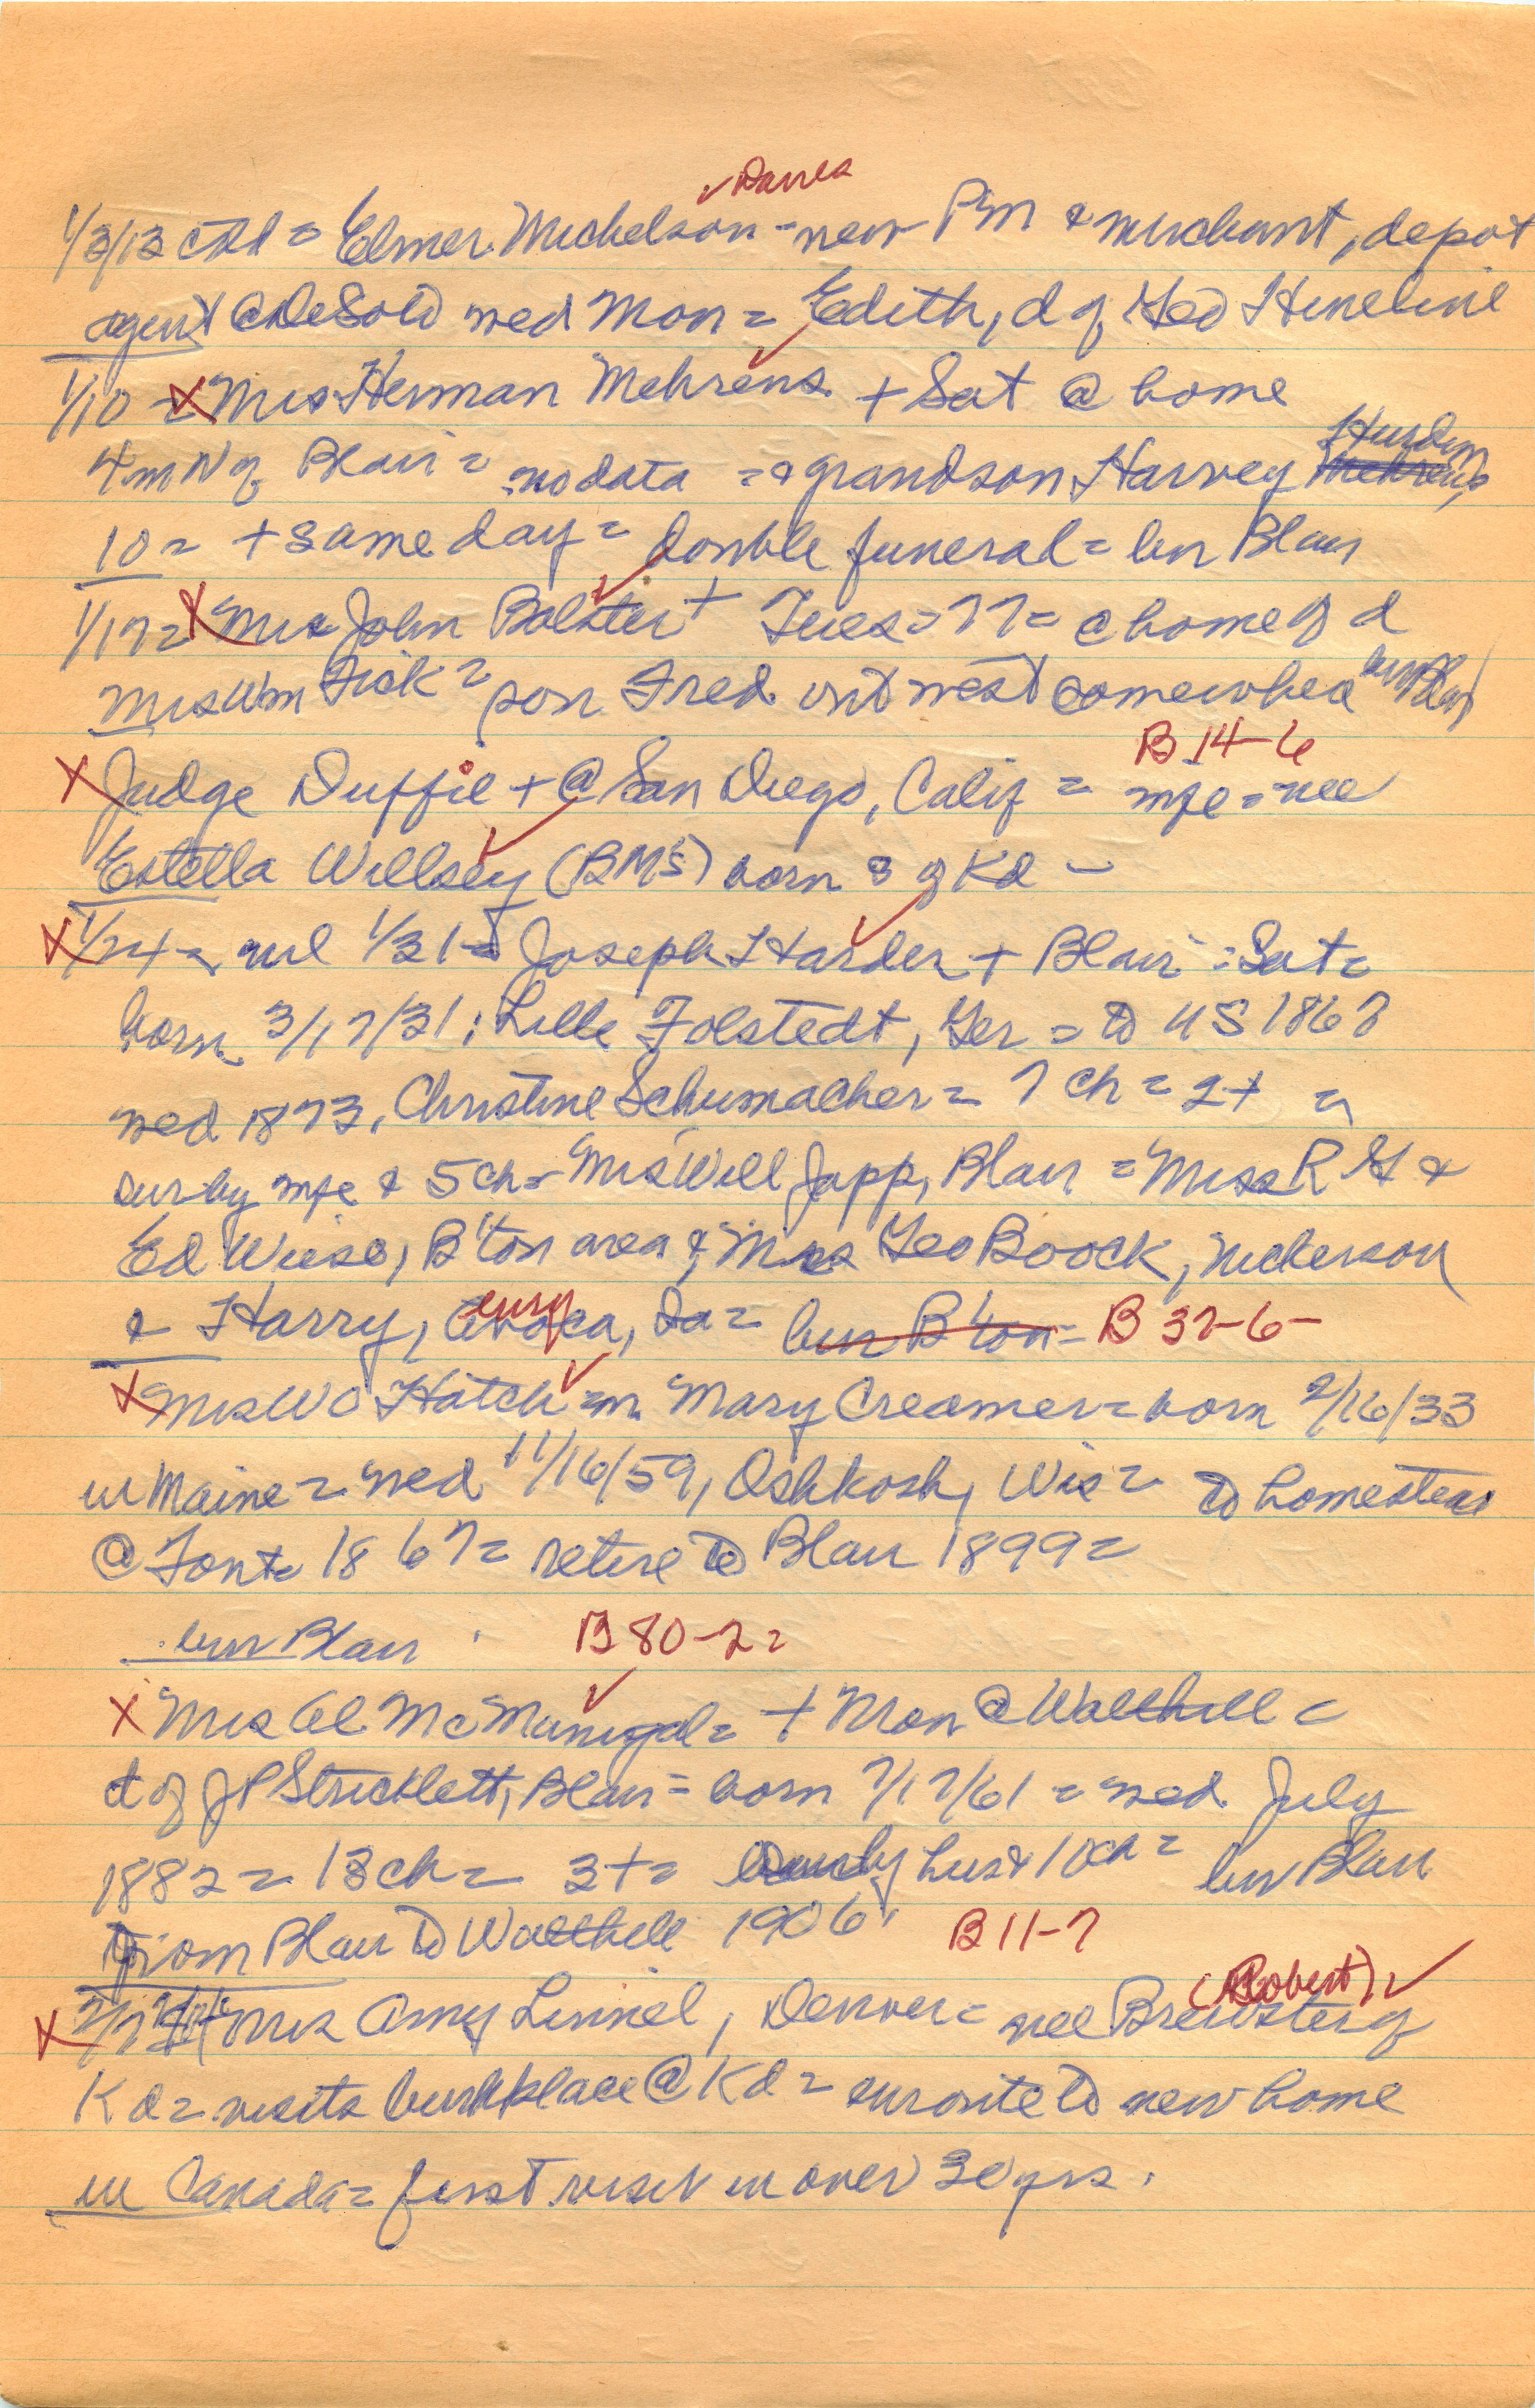 1/3/13 = Elmer Mickelson - new PM & merchant, depot
agent @ DeSoto wed Mon = Edith, d of Geo Hineline
1/10 = X Mrs Herman Mehrens + Sat @ home
4 m N of Blair = no data = & grandson Harvey
10 = + same day = double funeral = bur Blair
1/17 = X Mrs John Bolster + Tues = 77 = @ home of d
Mrs Wm Fisk = son Fred out west somewhere bur Blair
B 14-6
X Judge Duffie + @ San Diego, Calif = wife = nee
Estella Willsey (BM's) born s of Kd -
X 1/24 = nil 1/31 = Joseph Harder + Blair = Sat =
born 3/17/31, Folstedt, Ger = to US 1867
wed 1873, Christine Schumacher = 7 ch = 2+ =
sur by wife & 5 ch = Mrs Will Japp, Blair = Miss R H &
Ed Wiese, B'ton area & Mrs Geo Boock, Nickerson
& Harry, Avoca, Ia = bur B'ton = B 32-6-
X Mrs W O Hatch = Mary Creamer = born 2/16/33
in Maine = wed 11/16/59, Oshkosh, Wis = to homestead
@ Font = 1867 = retire to Blair 1899 =
bur Blair B 80-2 =
X Mrs Al McManigal = + Mon @ Walthill =
d of J P Stricklett, Blair = born 7/17/61 = wed July
1882 = 13 ch = 3+ = sur by hus & 10 ch = bur Blair
from Blair to Walthill 1906. B 11-7
(Robert)
X 2/7 Mrs Amy Linnel, Denver = nee Brewster of
Kd = visits birthplace @ Kd = enroute to new home
in Canada = first visit in over 30 yrs.